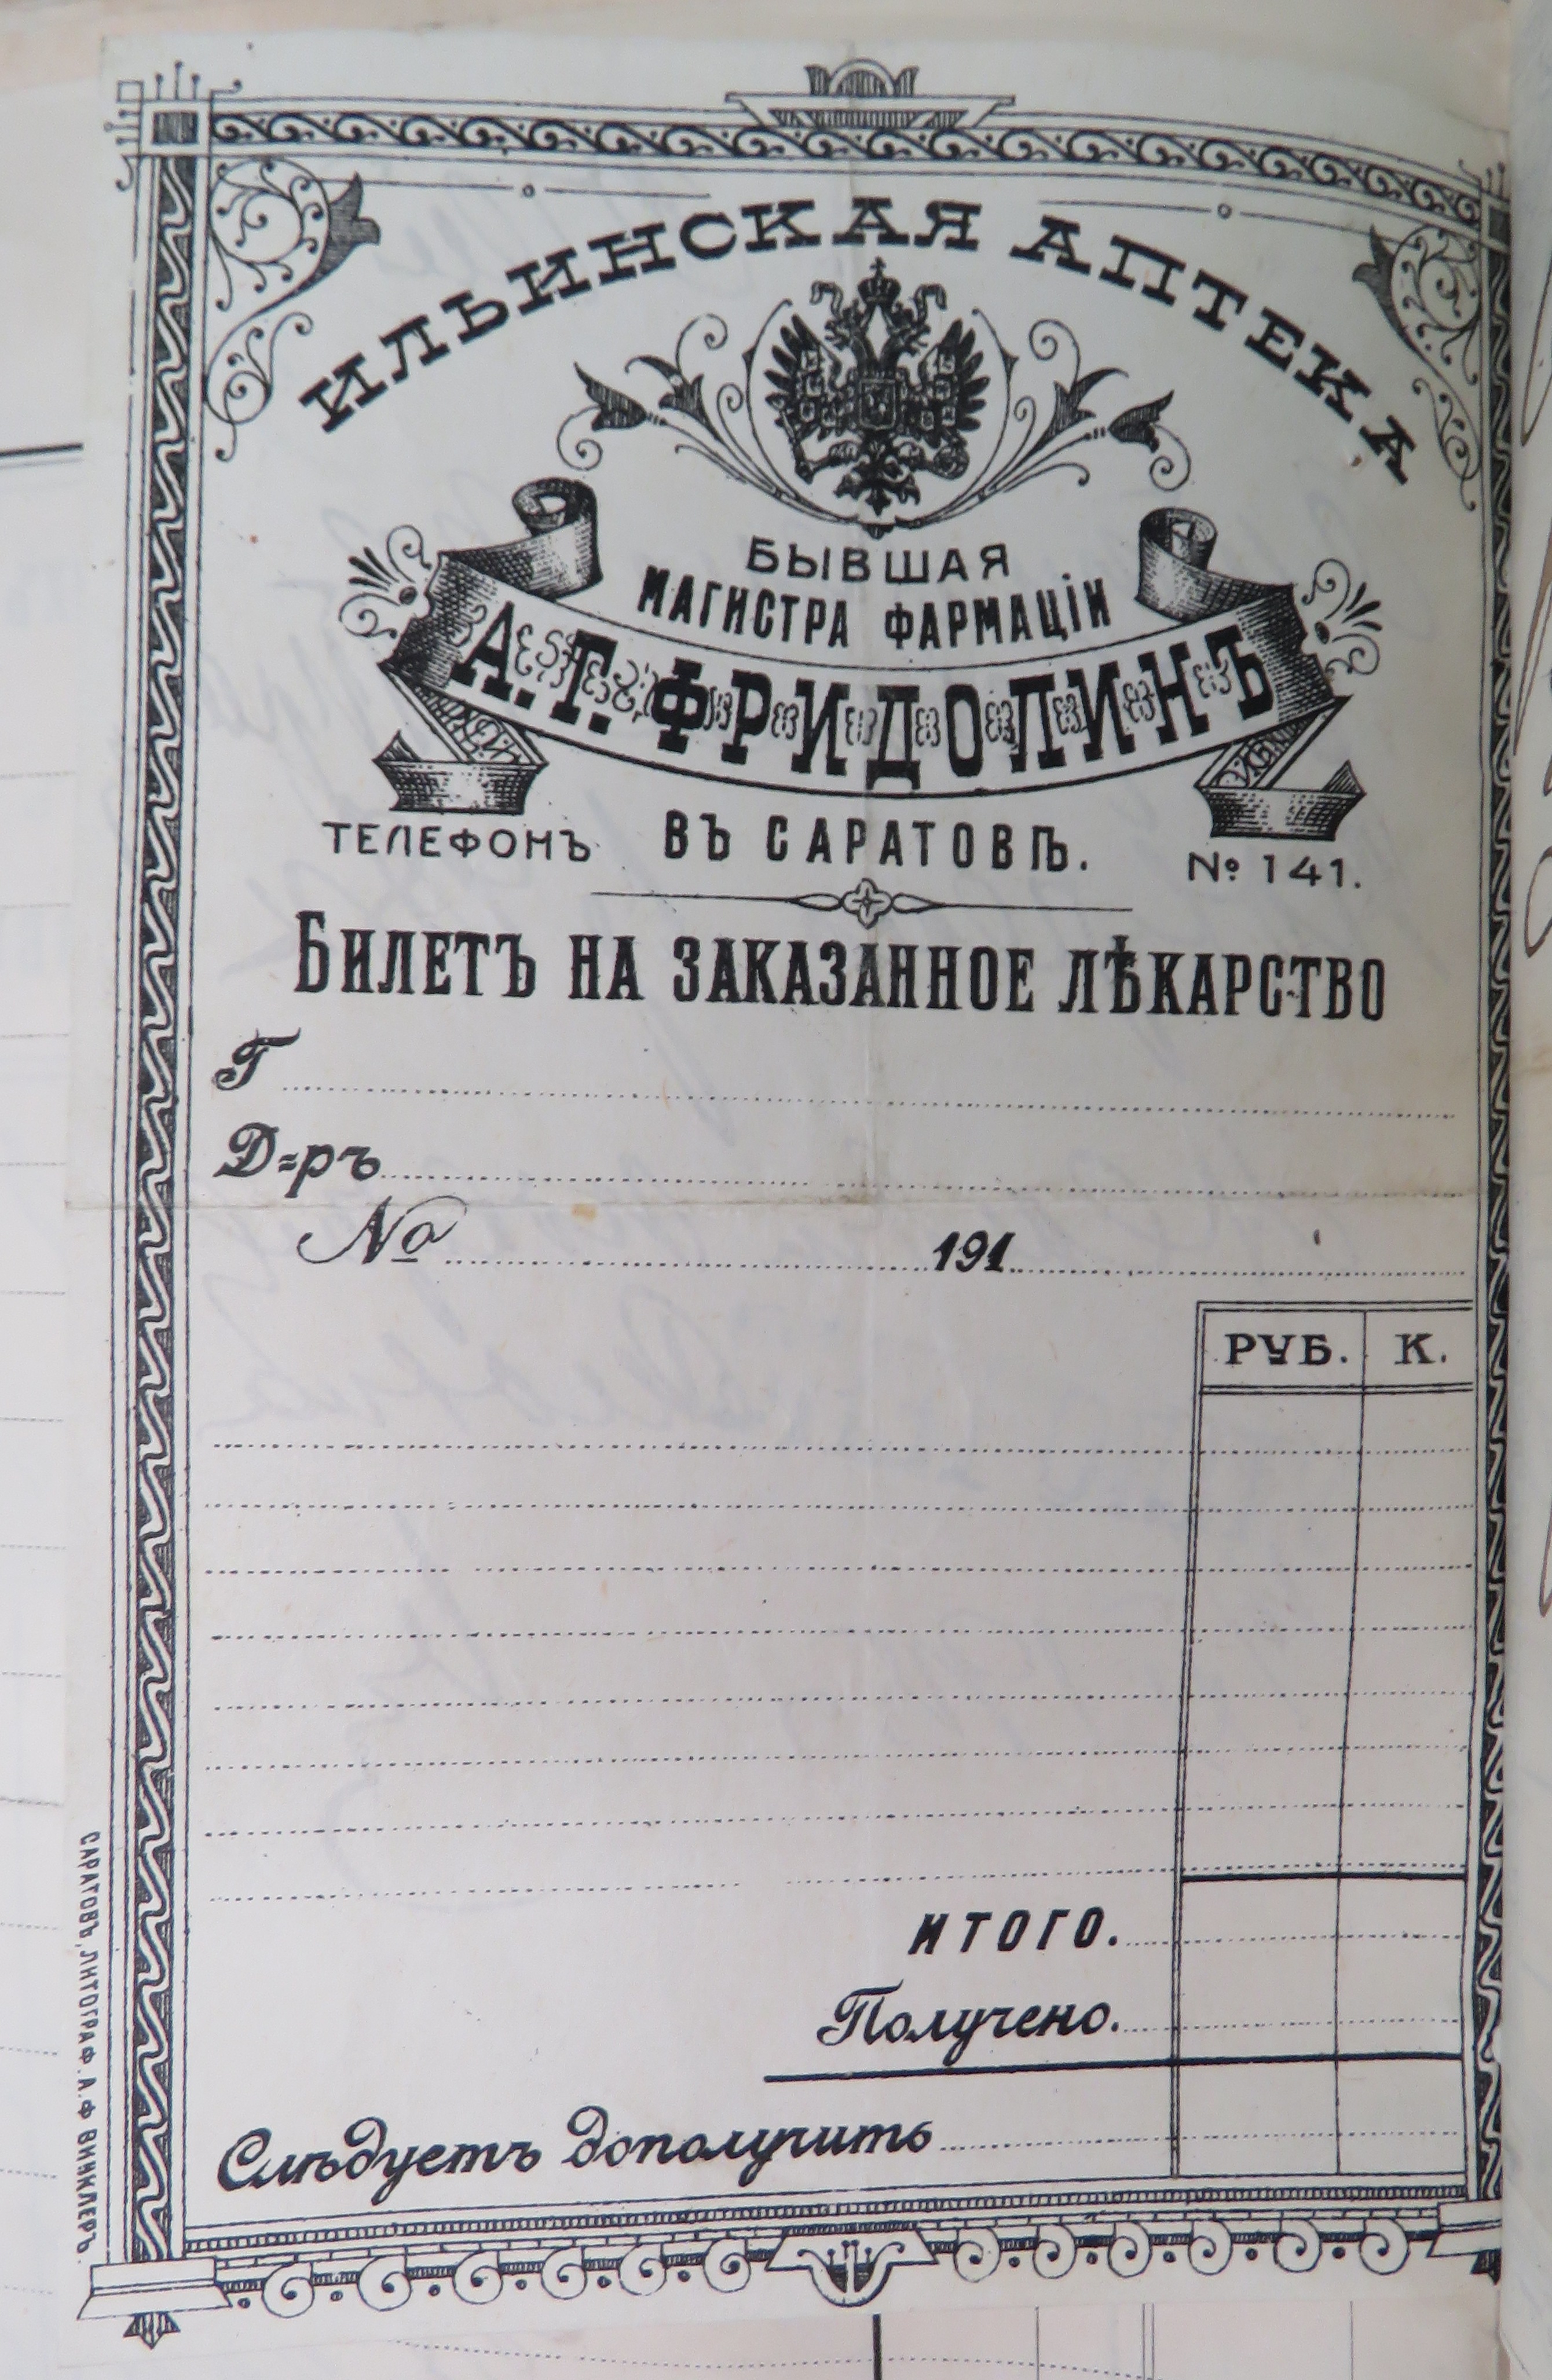 ИЛЬИНСКАЯ АПТЕКА
БЫВШАЯ
МАГИСТРА ФАРМАЦІИ
А. Г. ФРИДОЛИНЪ
ВЪ САРАТОВѢ.
ТЕЛЕФОНЪ № 141.
БИЛЕТЪ НА ЗАКАЗАННОЕ ЛѢКАРСТВО
Г
Д=ръ
№ 191
РУБ. К.
ИТОГО.
Получено.
Слѣдуетъ дополучить
САРАТОВЪ, ЛИТОГРАФ. А. Ф ВИНКЛЕРЪ.